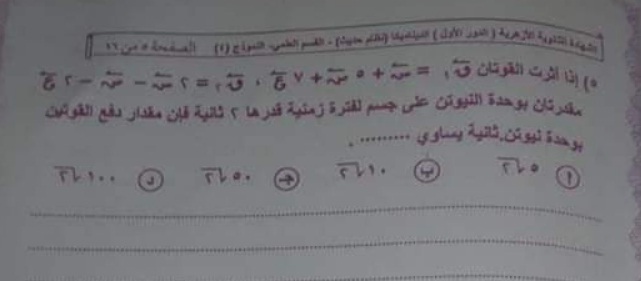 الشهادة الثانوية الأزهرية ( الدور الأول ) الديناميكا (نظام حديث) - القسم العلمي- النموذج (٤) الصفحة ٥ من ١٦
٥) إذا أثرت القوتان ق١ = س + ٥ ص + ٧ ع ، ق٢ = ٢ س - ص - ٢ ع
مقدرتان بوحدة النيوتن على جسم لفترة زمنية قدرها ٢ ثانية فإن مقدار دفع القوتين
بوحدة نيوتن.ثانية يساوي ......... .
أ ٥√٢ ب ١٠√٢ ج ٥٠√٢ د ١٠٠√٢